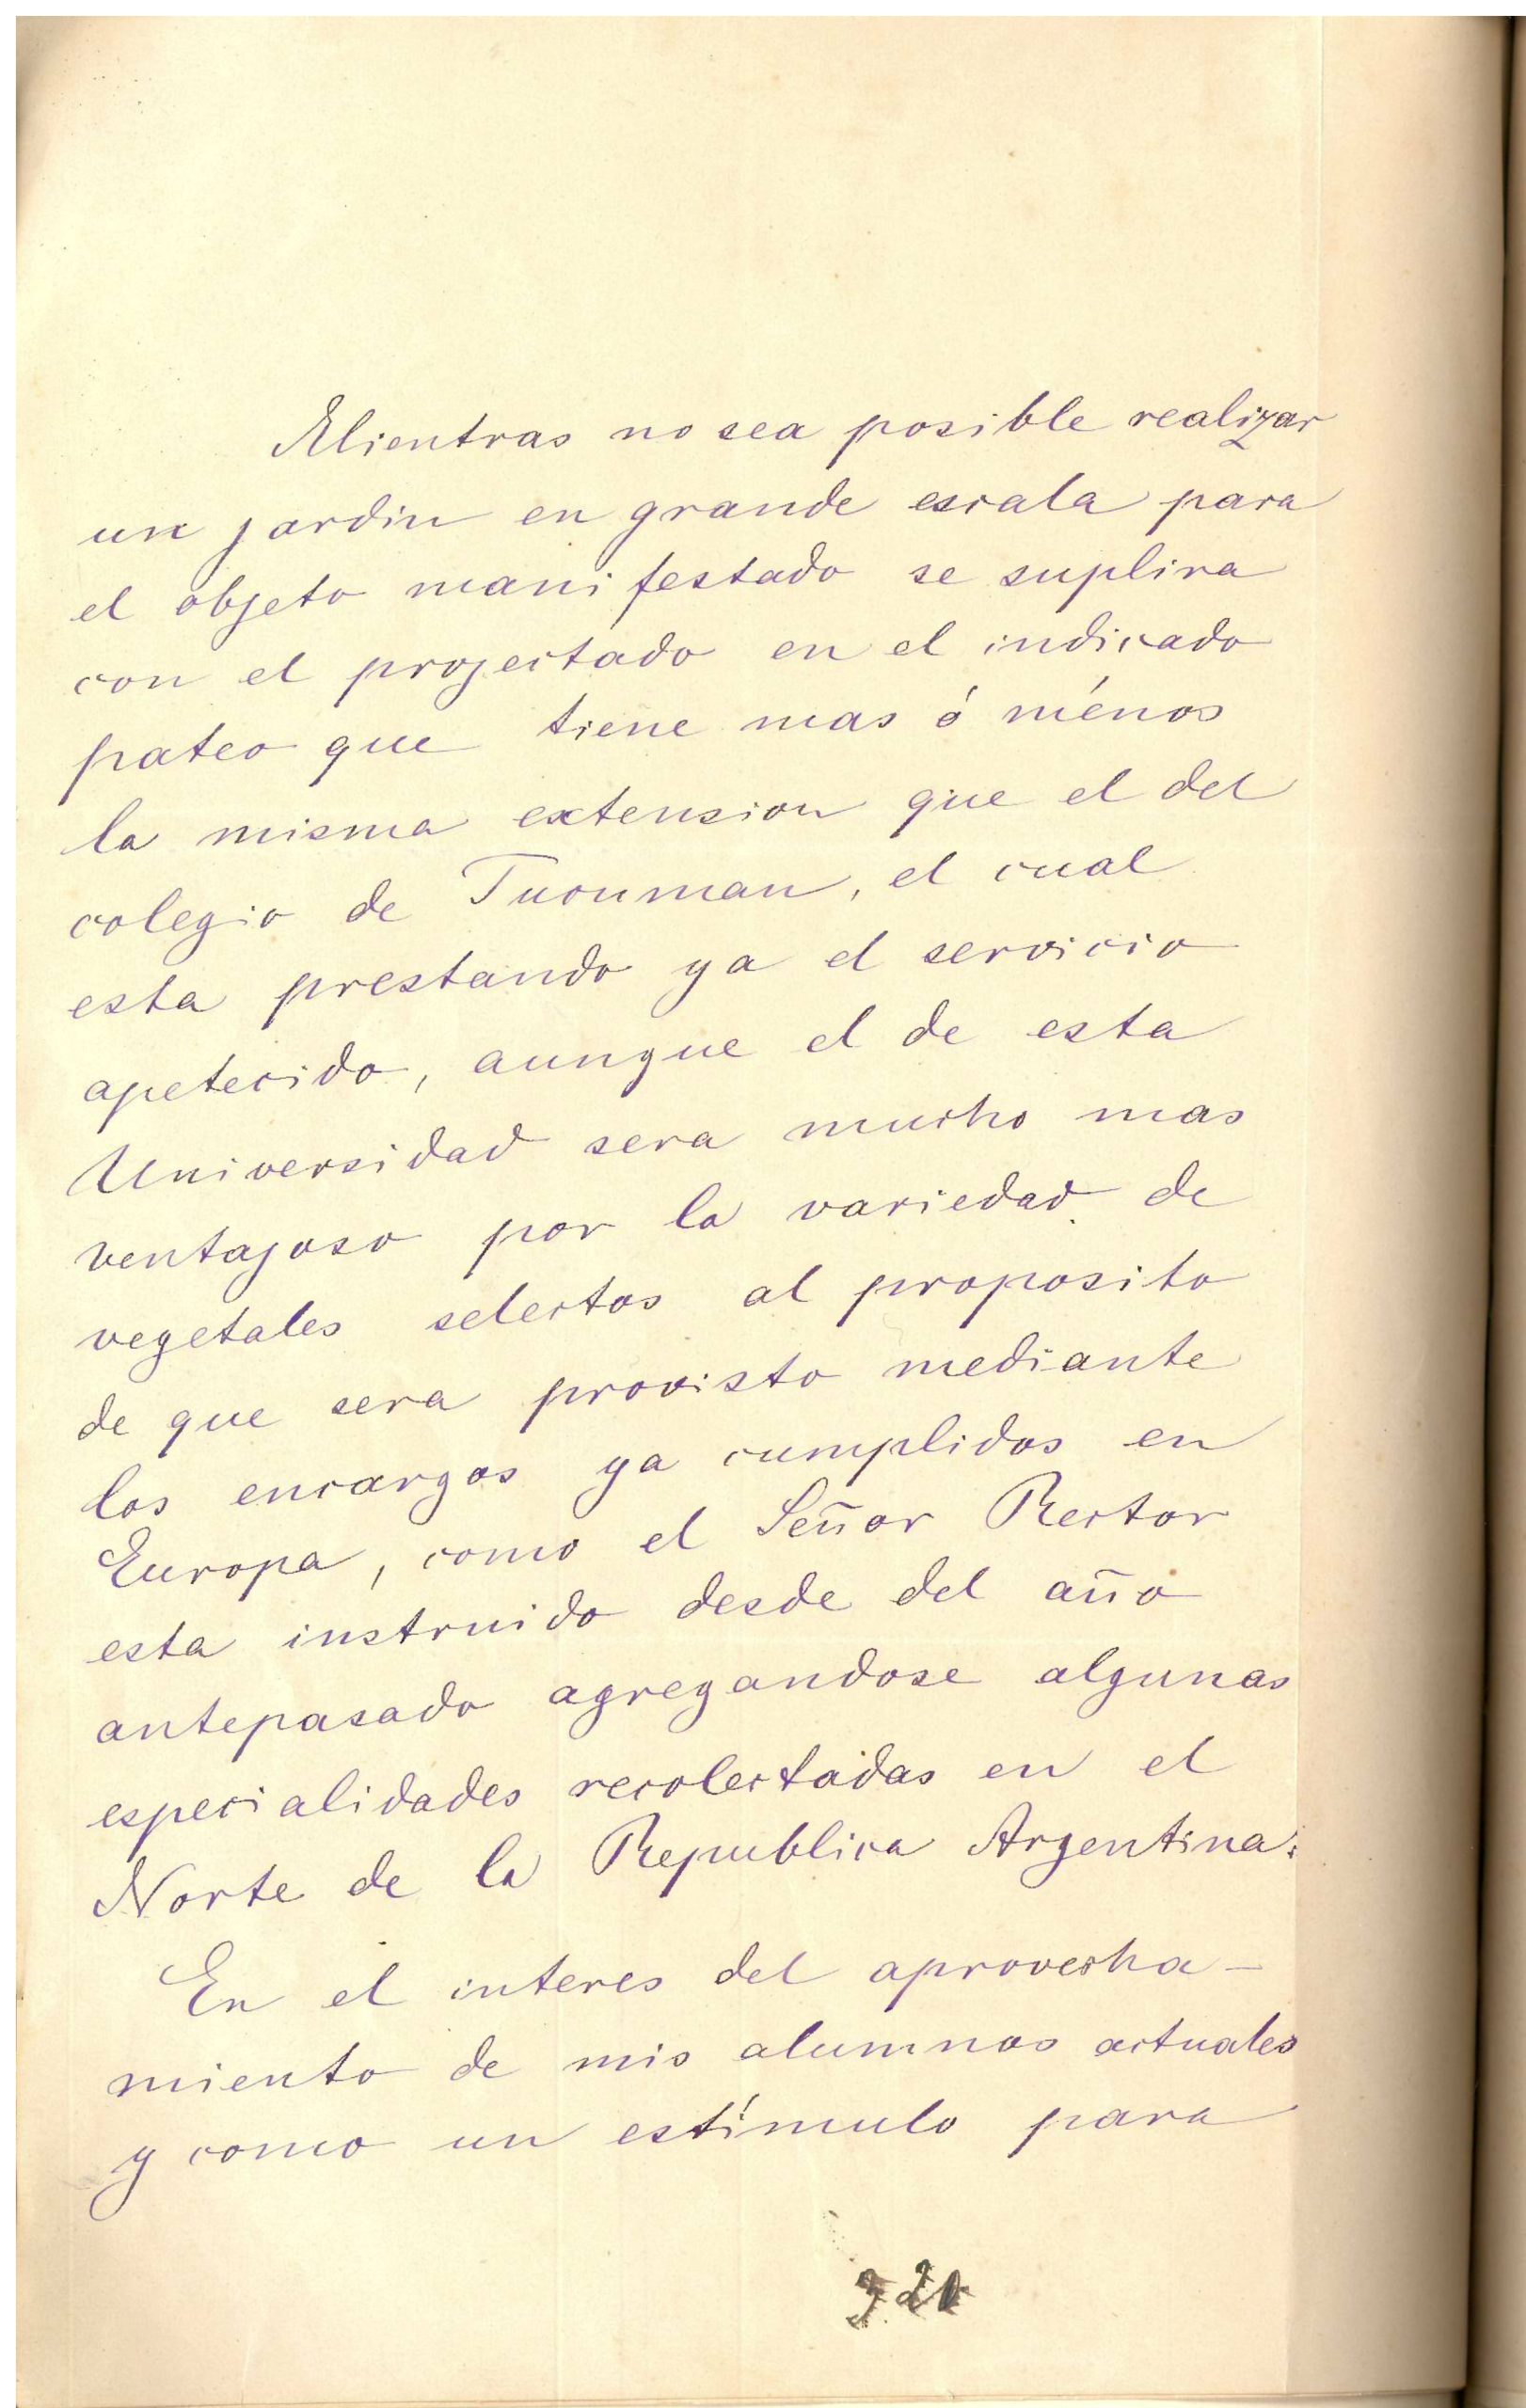 Mientras no sea posible realizar
un jardin en grande escala para
el objeto manifestado se suplira
con el projectado en el indicado
pateo que tiene mas ó ménos
la misma extension que el del
colegio de Tucuman, el cual
esta prestando ya el servicio
apetecido, aunque el de esta
Universidad sera mucho mas
ventajoso por la variedad de
vegetales selectos al proposito
de que sera provisto mediante
los encargos ya cumplidos en
Europa, como el Señor Rector
esta instruido desde del año
antepasado agregandose algunas
especialidades recolectadas en el
Norte de la Republica Argentina.
En el interes del aprovecha-
miento de mis alumnos actuales
y como un estímulo para
320